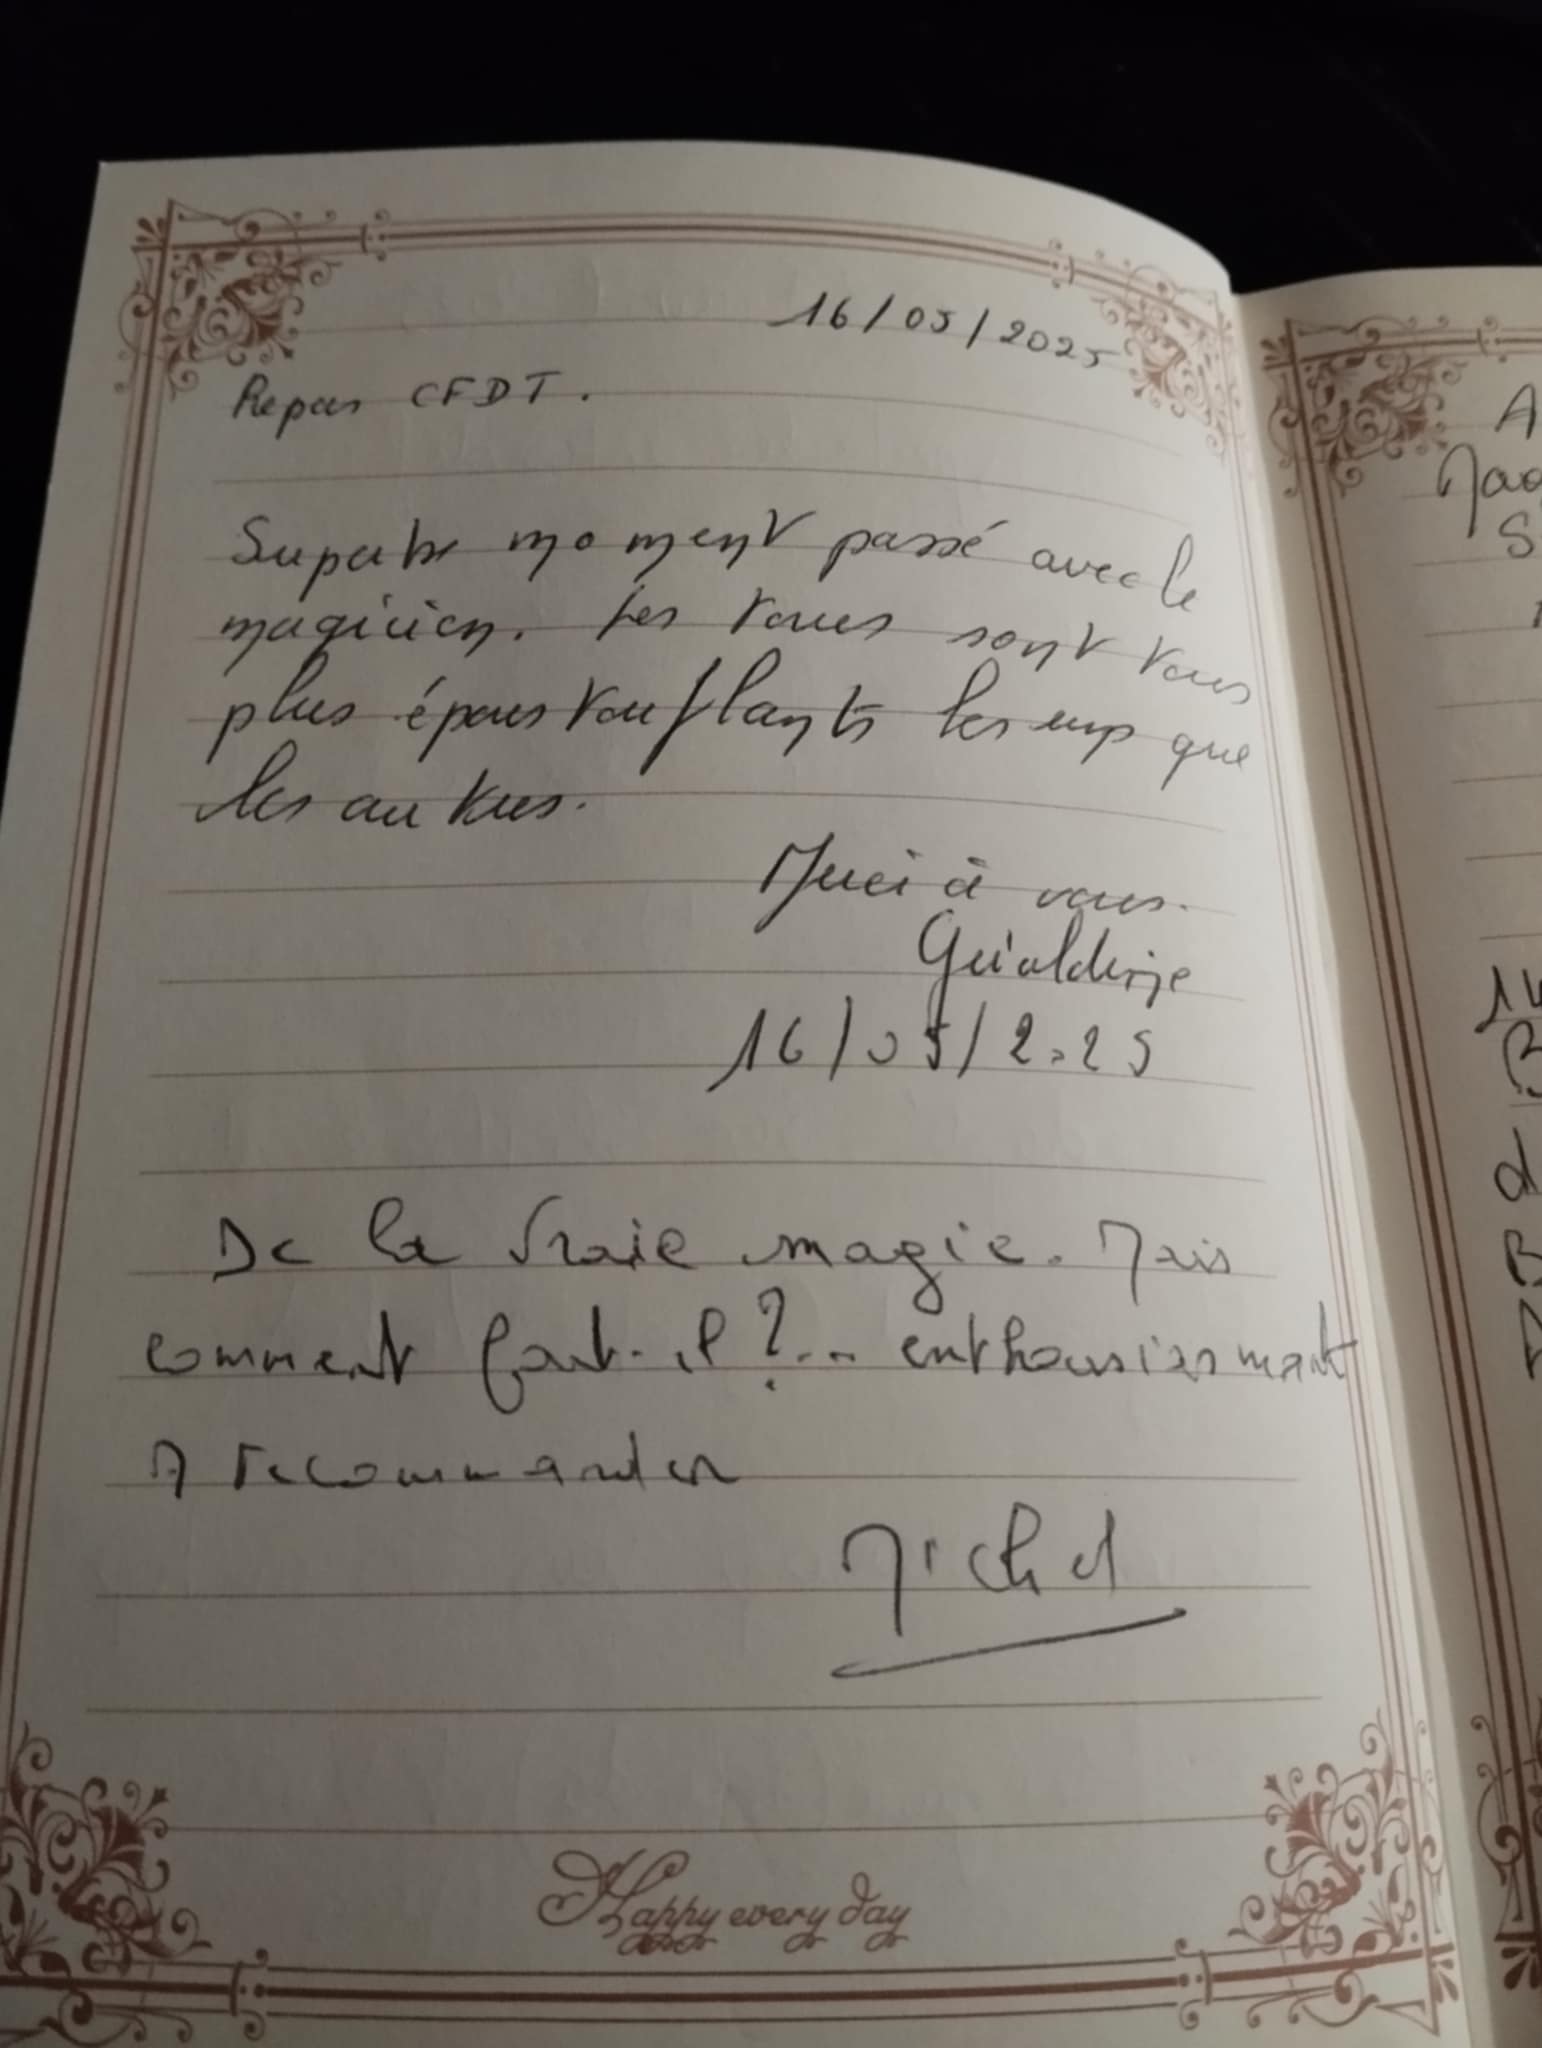 16/05/2025
Repas CFDT.
Superbe moment passé avec le
magicien. Les tours sont tous
plus époustouflants les uns que
les autres.
Merci à vous.
Géraldine
16/05/2025
De la vraie magie. Mais
comment fait-il ?... enthousiasmant
A recommander
Michel
Happy every day